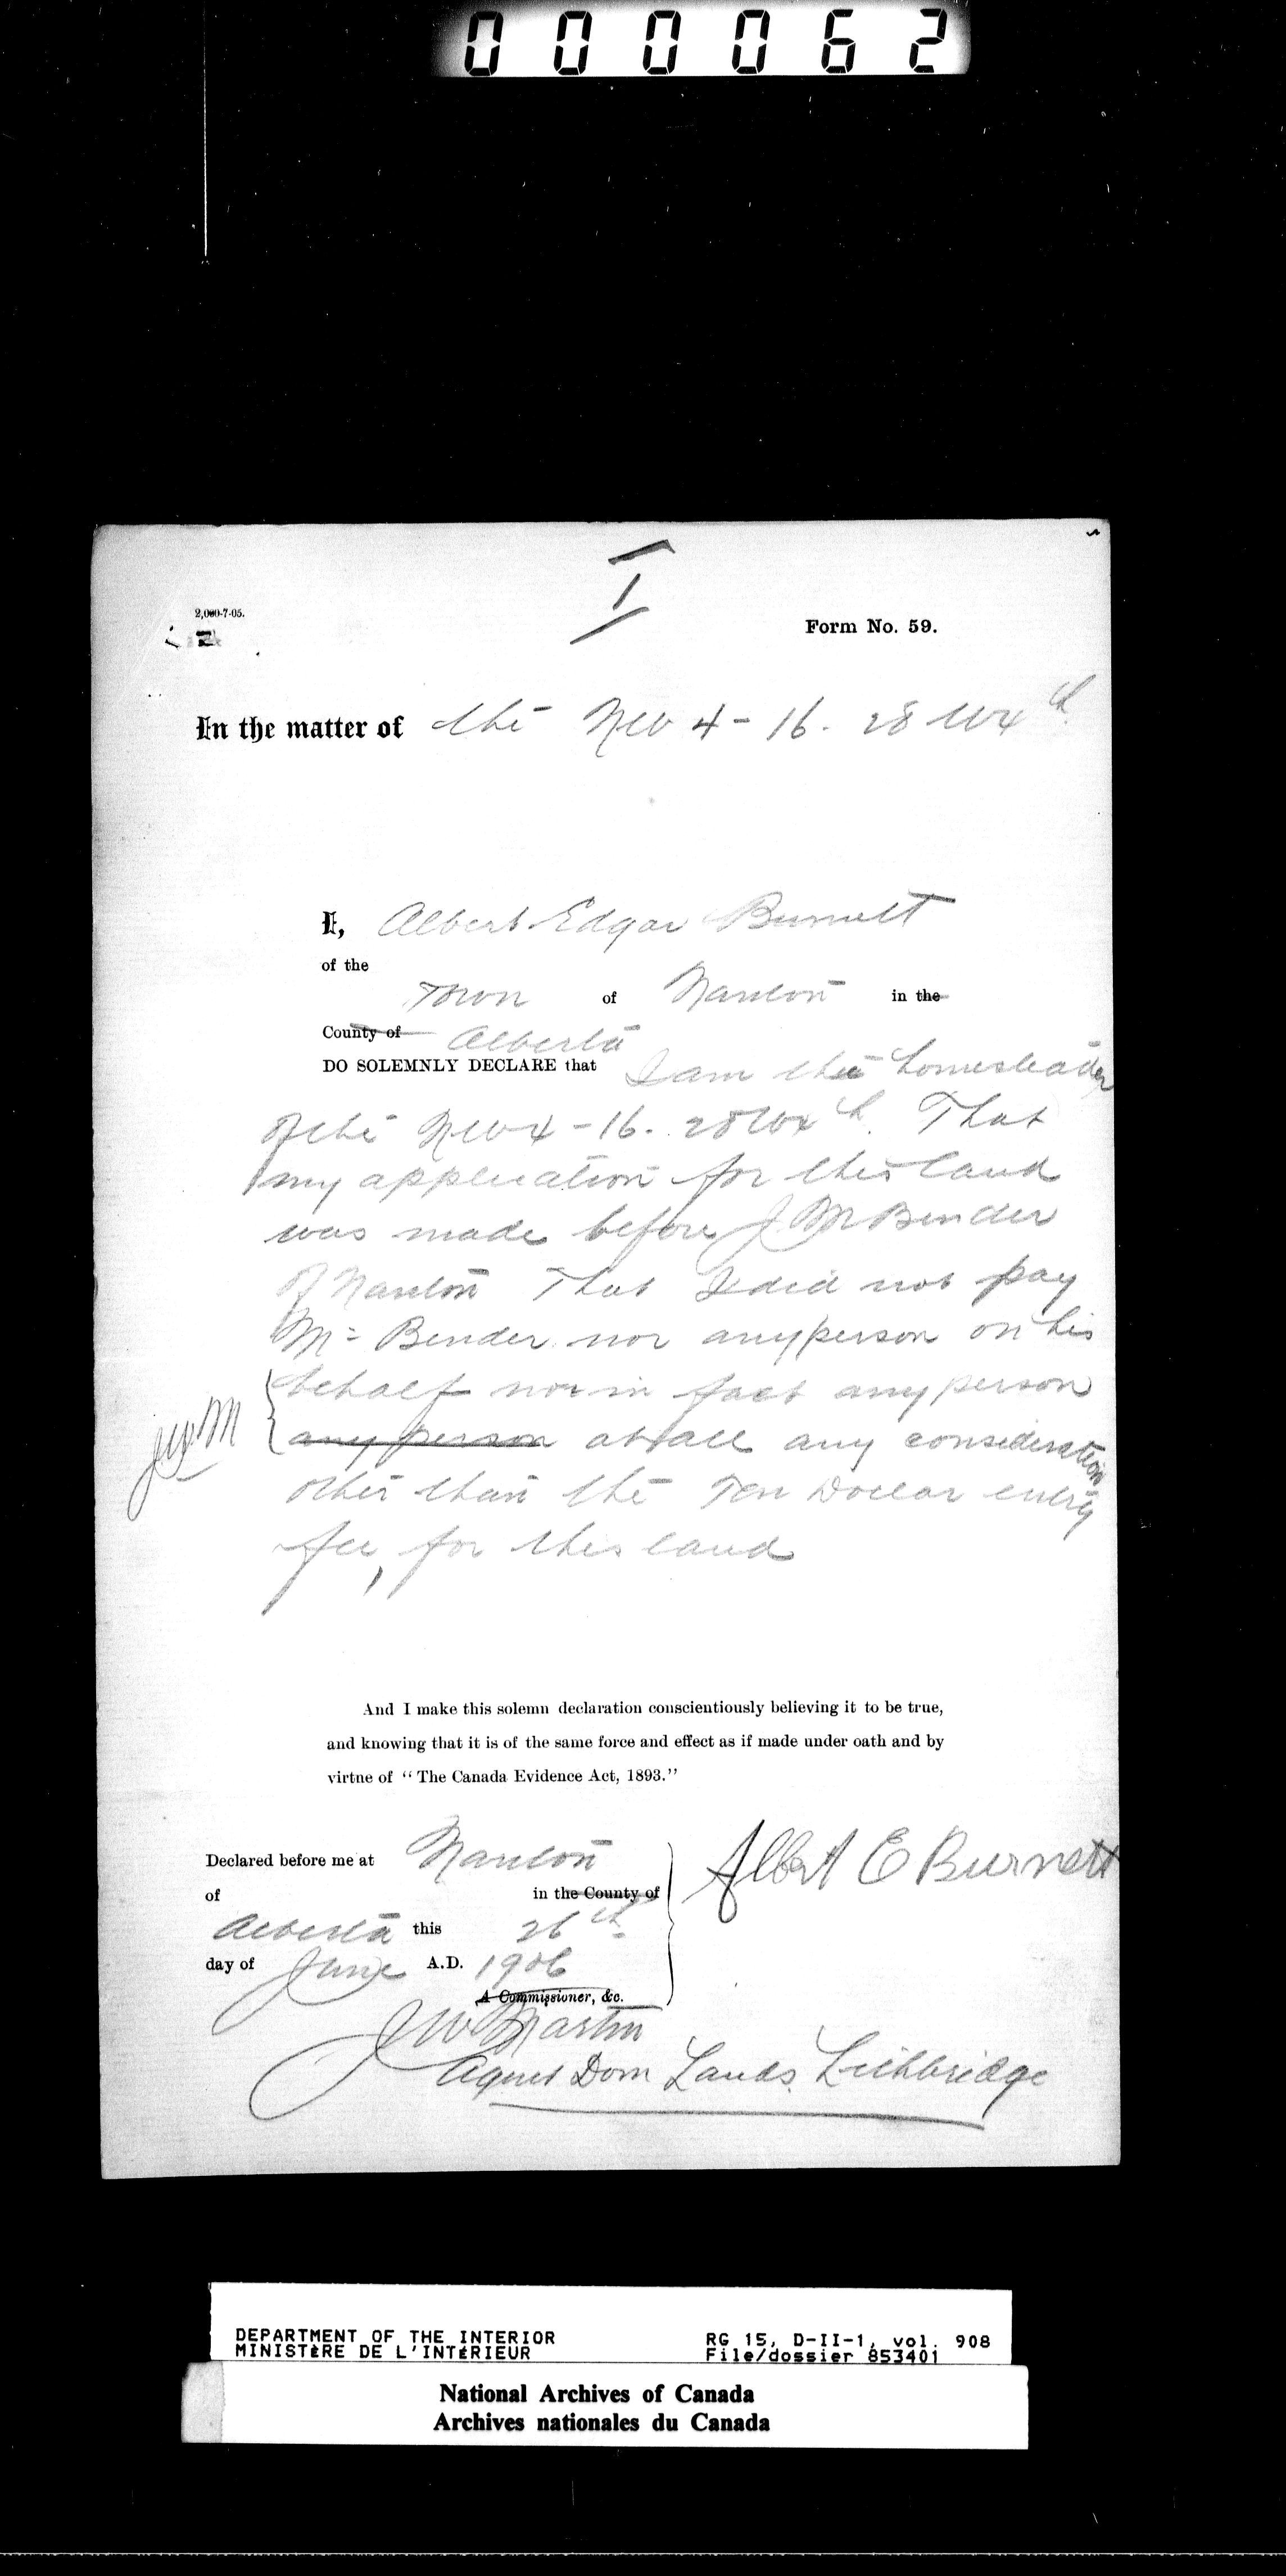 000062
I
2,000-7-05.
Form No. 59.
In the matter of the NW 4 - 16. 28 W4th
I, Albert Edgar Burnett
of the
Town of Nanton in the
County of Alberta
DO SOLEMNLY DECLARE that I am the homesteader
of the NW 4 - 16. 28 W4th. That
my application for this land
was made before J. M Bender
of Nanton That I did not pay
Mr Bender nor any person on his
behalf nor in fact any person
JWM any person at all any consideration
other than the Ten Dollar entry
fee, for this land
And I make this solemn declaration conscientiously believing it to be true,
and knowing that it is of the same force and effect as if made under oath and by
virtue of "The Canada Evidence Act, 1893."
Declared before me at Nanton
Albert E Burnett
of in the County of
Alberta this 26th
day of June A.D. 1906
A Commissioner, &c.
J W Martin
Agent Dom Lands. Lethbridge
DEPARTMENT OF THE INTERIOR RG 15, D-II-1, vol. 908
MINISTÈRE DE L'INTÉRIEUR File/dossier 853401
National Archives of Canada
Archives nationales du Canada